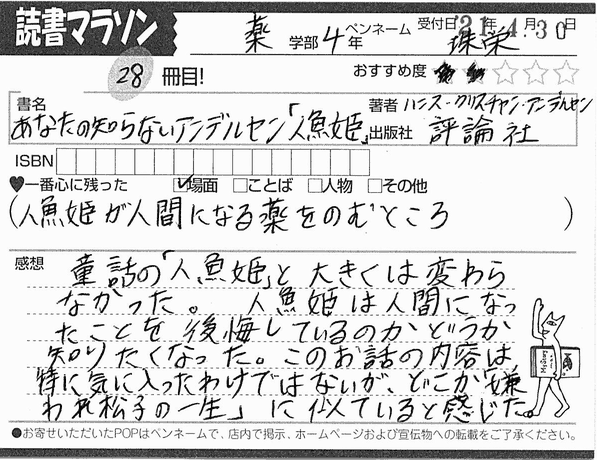 読書マラソン
薬 学部 4年 ペンネーム 珠栄 受付日 '21年4月30日
28冊目! おすすめ度 ★★☆☆☆
書名 あなたの知らないアンデルセン「人魚姫」
著者 ハンス・クリスチャン・アンデルセン
出版社 評論社
ISBN
♥一番心に残った ☑場面 □ことば □人物 □その他
(人魚姫が人間になる薬をのむところ)
感想 童話の「人魚姫」と大きくは変わら
なかった。 人魚姫は人間になっ
たことを後悔しているのかどうか
知りたくなった。このお話の内容は
特に気に入ったわけではないが、どこか「嫌
われ松子の一生」に似ていると感じた。
●お寄せいただいたPOPはペンネームで、店内で掲示、ホームページおよび宣伝物への転載をご了承ください。